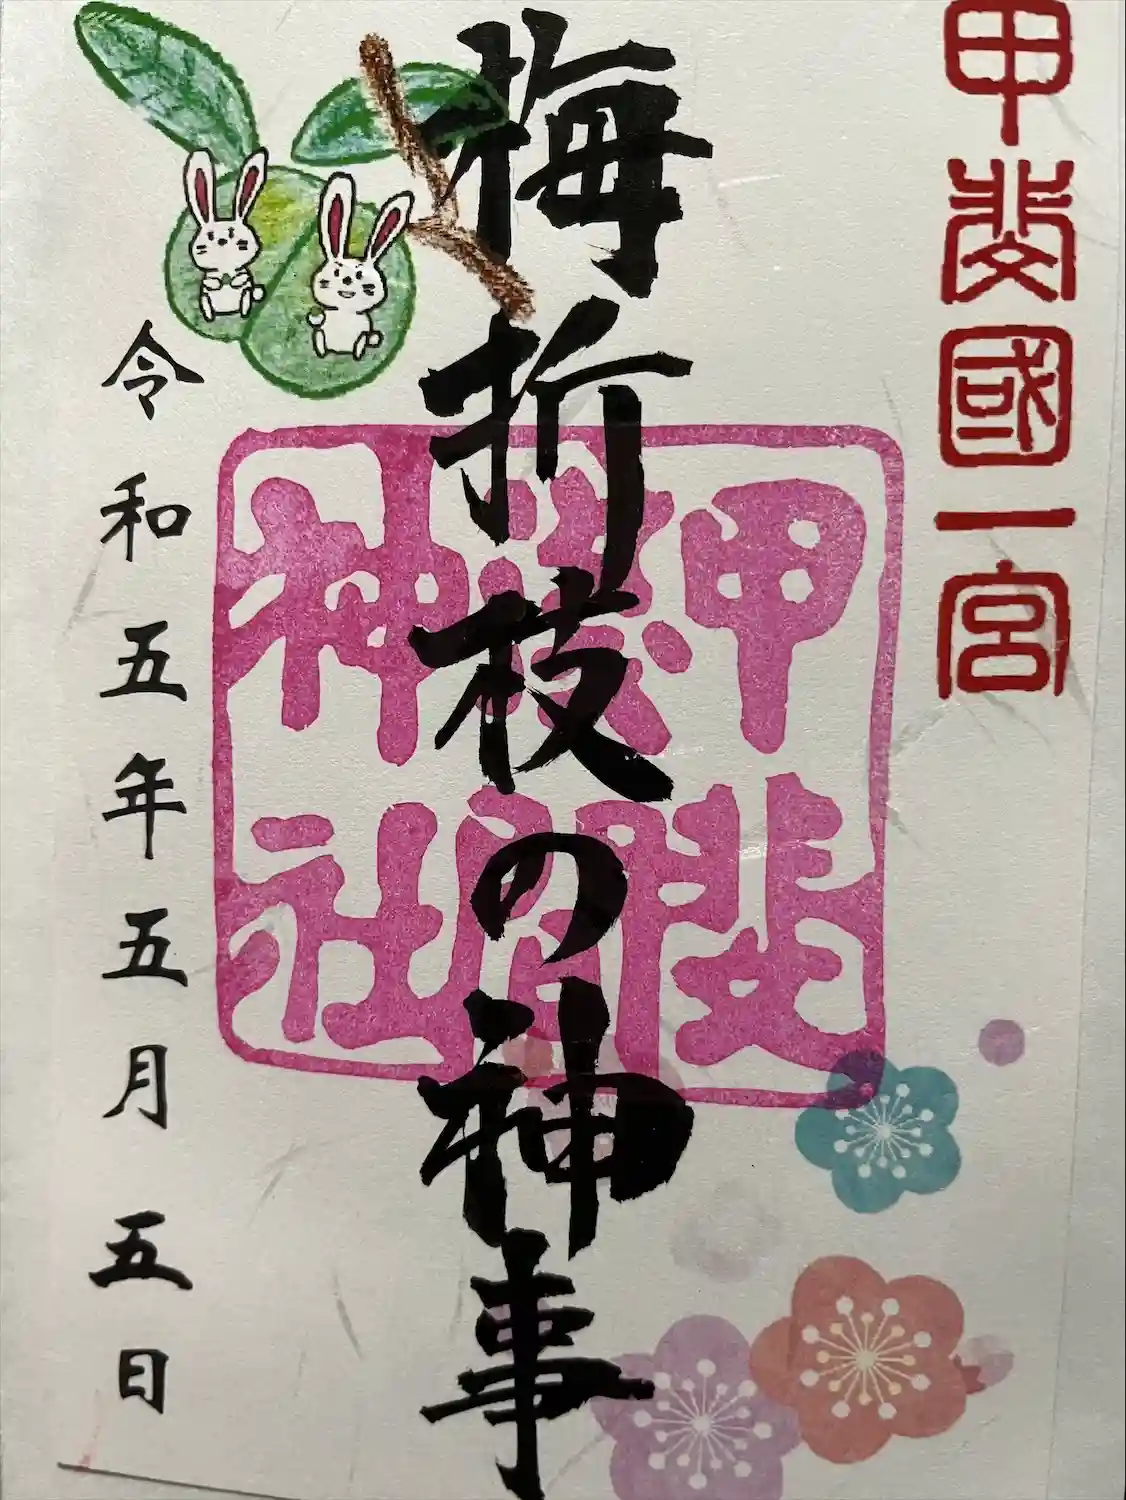 甲斐國一宮
梅折枝の神事
甲斐
淺間
神社
令和五年五月五日